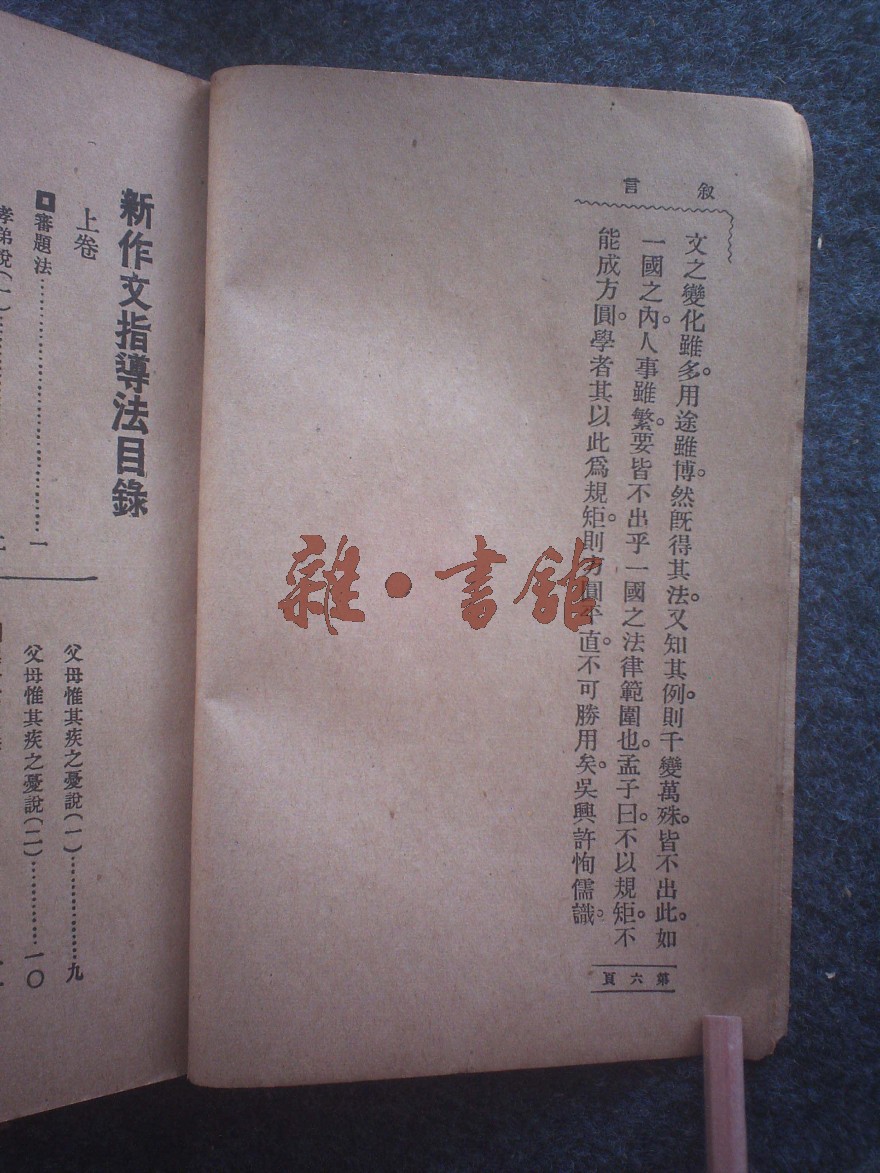 叙言
文之變化雖多。用途雖博。然既得其法。又知其例。則千變萬殊。皆不出此。如
一國之內。人事雖繁。要皆不出乎一國之法律範圍也。孟子曰。不以規矩。不
能成方圓。學者其以此爲規矩。則方圓平直。不可勝用矣。吳興許恂儒識。
第六頁
雜·書館
新作文指導法目錄
上卷
審題法……一
孝弟說(一)……
父母惟其疾之憂說(一)……九
父母惟其疾之憂說(二)……一〇